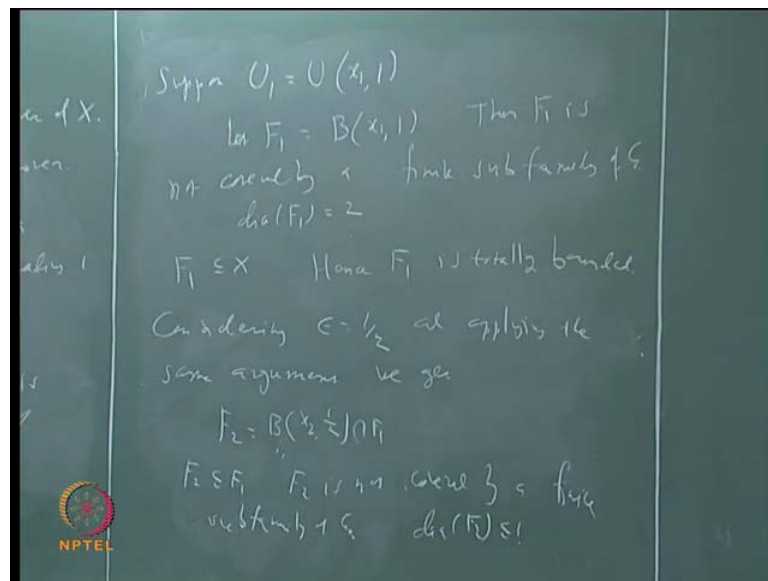 er of X.
over.
Suppose U₁ = U(x₁, 1)
let F₁ = B(x₁, 1) Then F₁ is
not covered by a finite subfamily of G.
dia(F₁) = 2
F₁ ⊆ X Hence F₁ is totally bounded.
Considering ε = 1/2 and applying the
same argument we get
F₂ = B(x₂, 1/2) ∩ F₁
F₂ ⊆ F₁ F₂ is not covered by a finite
subfamily of G. dia(F₂) ≤ 1
NPTEL